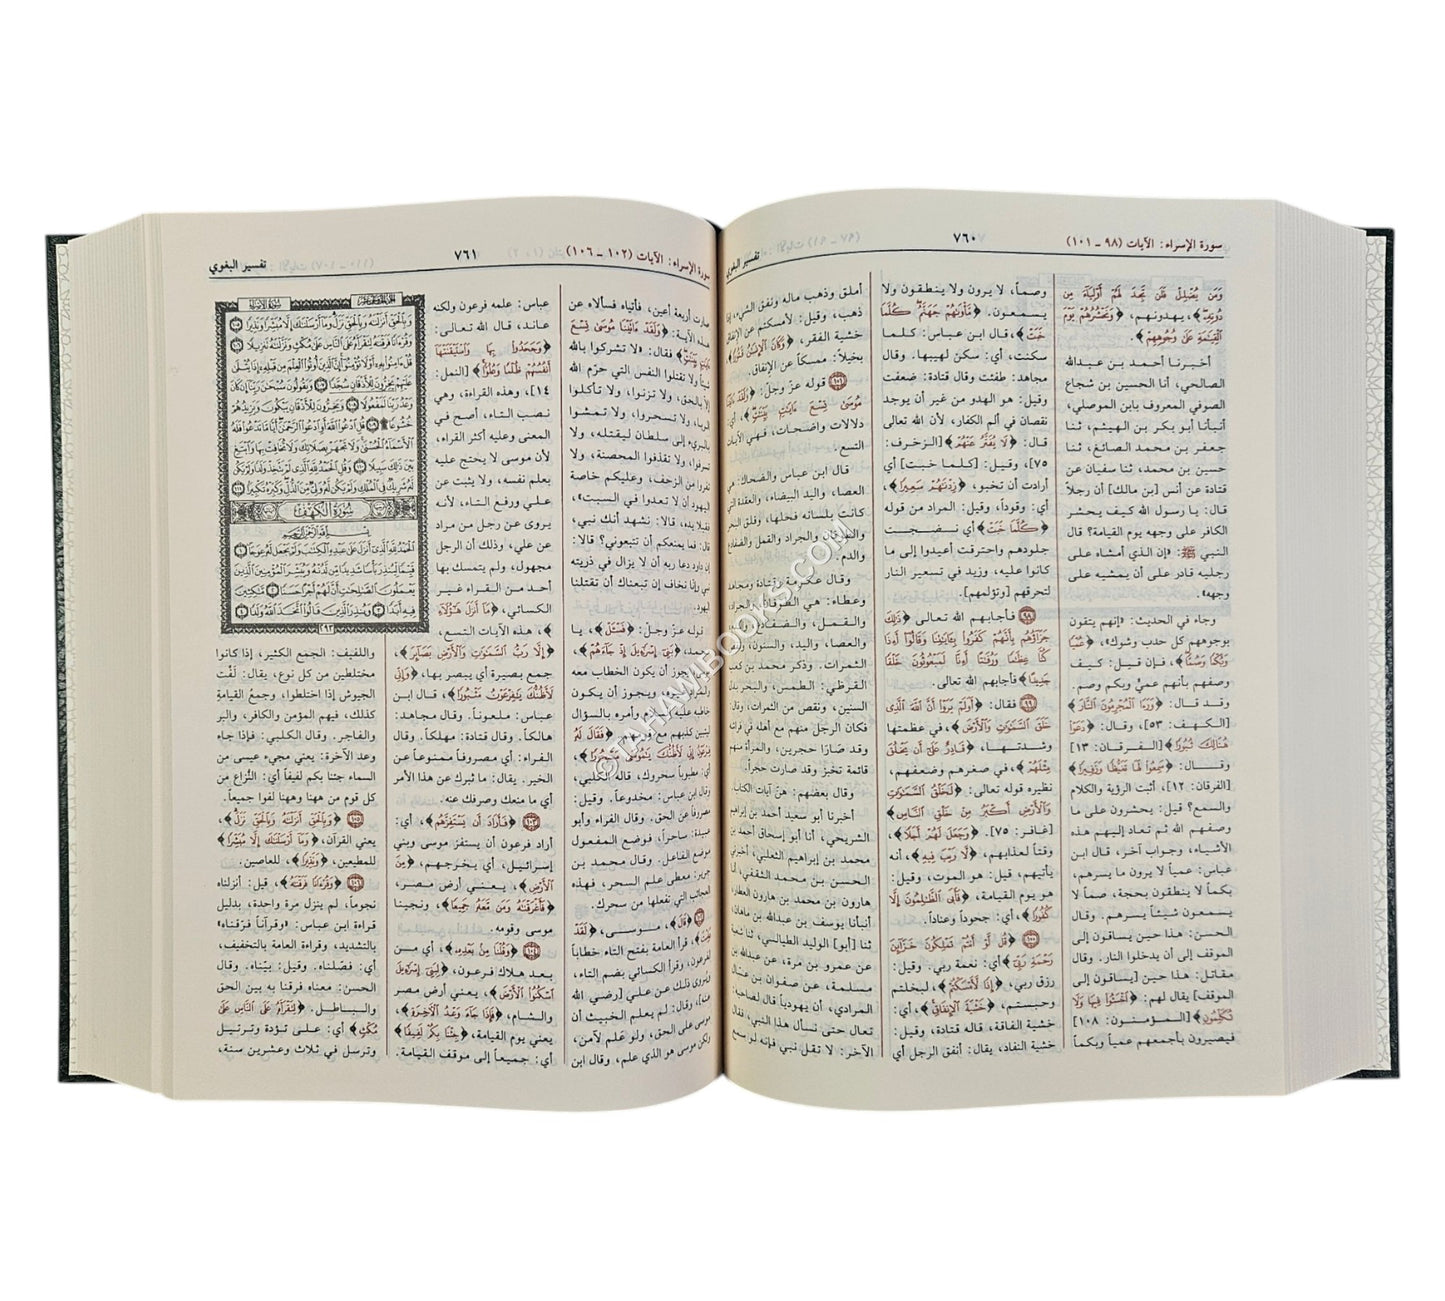 سورة الإسراء: الآيات (٩٨ - ١٠١)
٧٦٠
تفسير البغوي
وَمَن يُضْلِلْ فَلَن تَجِدَ لَهُمْ أَوْلِيَاءَ مِن
دُونِهِ﴾، يهدونهم، ﴿وَنَحْشُرُهُمْ يَوْمَ
الْقِيَامَةِ عَلَى وُجُوهِهِمْ﴾.
أخبرنا أحمد بن عبدالله
الصالحي، أنا الحسين بن شجاع
الصوفي المعروف بابن الموصلي،
أنبأنا أبو بكر بن الهيثم، ثنا
جعفر بن محمد الصائغ، ثنا
حسين بن محمد، ثنا سفيان عن
قتادة عن أنس [بن مالك] أن رجلاً
قال: يا رسول الله كيف يحشر
الكافر على وجهه يوم القيامة؟ قال
النبي ﷺ: «إن الذي أمشاه على
رجليه قادر على أن يمشيه على
وجهه».
وجاء في الحديث: «إنهم يتقون
بوجوههم كل حدب وشوك»، ﴿عُمْيًا
وَبُكْمًا وَصُمًّا﴾، فإن قيل: كيف
وصفهم بأنهم عميٌ وبكم وصم.
وقد قال: ﴿وَرَءَا الْمُجْرِمُونَ النَّارَ﴾
[الكهف: ٥٣]، وقال: ﴿دَعَوْا
هُنَالِكَ ثُبُورًا﴾ [الفرقان: ١٣]
وقال: ﴿سَمِعُوا لَهَا تَغَيُّظًا وَزَفِيرًا﴾
[الفرقان: ١٢]، أثبت الرؤية والكلام
والسمع؟ قيل: يحشرون على ما
وصفهم الله ثم تعاد إليهم هذه
الأشياء، وجواب آخر، قال ابن
عباس: عمياً لا يرون ما يسرهم،
بكماً لا ينطقون بحجة، صماً لا
يسمعون شيئاً يسرهم. وقال
الحسن: هذا حين يساقون إلى
الموقف إلى أن يدخلوا النار. وقال
مقاتل: هذا حين [يساقون إلى
الموقف] يقال لهم: ﴿اخْسَئُوا فِيهَا وَلَا
تُكَلِّمُونِ﴾ [المؤمنون: ١٠٨]
فيصيرون بأجمعهم عمياً وبكماً
وصماً، لا يرون ولا ينطقون ولا
يسمعون. ﴿مَأْوَاهُمْ جَهَنَّمُ كُلَّمَا
خَبَتْ﴾، قال ابن عباس: كلما
سكنت، أي: سكن لهيبها. وقال
مجاهد: طفئت وقال قتادة: ضعفت
وقيل: هو الهدو من غير أن يوجد
نقصان في ألم الكفار، لأن الله تعالى
قال: ﴿لَا يُفَتَّرُ عَنْهُمْ﴾ [الزخرف:
٧٥]، وقيل: [كلما خبت] أي
أرادت أن تخبو، ﴿زِدْنَاهُمْ سَعِيرًا﴾،
أي: وقوداً، وقيل: المراد من قوله
﴿كُلَّمَا خَبَتْ﴾ أي نضجت
جلودهم واحترقت أعيدوا إلى ما
كانوا عليه، وزيد في تسعير النار
لتحرقهم [وتؤلمهم].
٩٨ فأجابهم الله تعالى ﴿ذَلِكَ
جَزَاؤُهُم بِأَنَّهُمْ كَفَرُوا بِآيَاتِنَا وَقَالُوا أَءِذَا
كُنَّا عِظَامًا وَرُفَاتًا أَءِنَّا لَمَبْعُوثُونَ خَلْقًا
جَدِيدًا﴾ فأجابهم الله تعالى.
٩٩ فقال: ﴿أَوَلَمْ يَرَوْا أَنَّ اللَّهَ الَّذِي
خَلَقَ السَّمَاوَاتِ وَالْأَرْضَ﴾، في عظمتها
وشدتها، ﴿قَادِرٌ عَلَى أَن يَخْلُقَ
مِثْلَهُمْ﴾، في صغرهم وضعفهم،
نظيره قوله تعالى: ﴿لَخَلْقُ السَّمَاوَاتِ
وَالْأَرْضِ أَكْبَرُ مِنْ خَلْقِ النَّاسِ﴾
[غافر: ٧٥]. ﴿وَجَعَلَ لَهُمْ أَجَلًا﴾،
وقتاً لعذابهم، ﴿لَّا رَيْبَ فِيهِ﴾، أنه
يأتيهم، قيل: هو الموت، وقيل:
هو يوم القيامة، ﴿فَأَبَى الظَّالِمُونَ إِلَّا
كُفُورًا﴾، أي: جحوداً وعناداً.
١٠٠ ﴿قُل لَّوْ أَنتُمْ تَمْلِكُونَ خَزَائِنَ
رَحْمَةِ رَبِّي﴾ أي: نعمة ربي. وقيل:
رزق ربي، ﴿إِذًا لَّأَمْسَكْتُمْ﴾، لبخلتم
وحبستم، ﴿خَشْيَةَ الْإِنفَاقِ﴾، أي:
خشية الفاقة، قاله قتادة، وقيل:
خشية النفاد، يقال: أنفق الرجل أي
أملق وذهب ماله ونفق الشيء، إذا
ذهب، وقيل: لأمسكتم عن الإنفاق
خشية الفقر، ﴿وَكَانَ الْإِنسَانُ قَتُورًا﴾
بخيلاً، ممسكاً عن الإنفاق.
١٠١ قوله عزّ وجلّ: ﴿وَلَقَدْ ءَاتَيْنَا
مُوسَى تِسْعَ ءَايَاتٍ بَيِّنَاتٍ﴾، أي:
دلالات واضحات، فهي الآيات
التسع.
قال ابن عباس والضحاك: هي
العصا، واليد البيضاء، والعقدة التي
كانت بلسانه فحلها، وفلق البحر
والجراد والقمل والضفادع
والدم.
وقال عكرمة وقتادة ومجاهد
وعطاء: هي الطوفان والجراد
والقمل، والضفادع، والدم
والعصا، واليد، والسنون، ونقص
الثمرات. وذكر محمد بن كعب
القرظي: الطمس، والبحر بدل
السنين، ونقص من الثمرات، وقال:
فكان الرجل منهم مع أهله في فراشه
وقد صارا حجرين، والمرأة منهم
قائمة تخبز وقد صارت حجراً.
وقال بعضهم: هنّ آيات الكتاب.
أخبرنا أبو سعيد أحمد بن إبراهيم
الشريحي، أنا أبو إسحاق أحمد بن
محمد بن إبراهيم الثعلبي، أخبرني
الحسن بن محمد الثقفي، أنا
هارون بن محمد بن هارون العطار،
أنبأنا يوسف بن عبدالله بن ماهان،
ثنا [أبو] الوليد الطيالسي، ثنا شعبة
عن عمرو بن مرة، عن عبدالله بن
مسلمة، عن صفوان بن عسال
المرادي، أن يهودياً قال لصاحبه:
تعال حتى نسأل هذا النبي، فقال
الآخر: لا تقل نبي فإنه لو سمع
سورة الإسراء: الآيات (١٠٢ - ١٠٦)
٧٦١
تفسير البغوي
صارت أربعة أعين، فأتياه فسألاه عن
هذه الآية: ﴿وَلَقَدْ ءَاتَيْنَا مُوسَى تِسْعَ
ءَايَاتٍ بَيِّنَاتٍ﴾ فقال: «لا تشركوا بالله
شيئاً ولا تقتلوا النفس التي حرم الله
إلا بالحق، ولا تزنوا، ولا تأكلوا
الربا، ولا تسحروا، ولا تمشوا
بالبريء إلى سلطان ليقتله، ولا
تسرفوا، ولا تقذفوا المحصنة، ولا
تفروا من الزحف، وعليكم خاصة
اليهود أن لا تعدوا في السبت»،
فقبلا يده، قالا: نشهد أنك نبي،
قال: فما يمنعكم أن تتبعوني؟ قالا:
إن داود دعا ربه أن لا يزال في ذريته
نبي وإنا نخاف إن تبعناك أن تقتلنا
اليهود.
قوله عزّ وجلّ: ﴿فَسْـَٔلْ﴾، يا
محمد، ﴿بَنِي إِسْرَائِيلَ إِذْ جَاءَهُمْ﴾،
يجوز أن يكون الخطاب معه
ويجوز أن يكون
خاف عليه وأمره بالسؤال
ليتبين كذبهم مع قومهم. ﴿فَقَالَ لَهُ
فِرْعَوْنُ إِنِّي لَأَظُنُّكَ يَامُوسَى مَسْحُورًا﴾،
أي: مطبوباً سحروك، قاله الكلبي،
وقال ابن عباس: مخدوعاً. وقيل:
مصروفاً عن الحق. وقال الفراء وأبو
عبيدة: ساحراً، فوضع المفعول
موضع الفاعل. وقال محمد بن
جرير: معطى علم السحر، فهذه
العجائب التي تفعلها من سحرك.
١٠٢ ﴿قَالَ﴾، موسى، ﴿لَقَدْ
عَلِمْتَ﴾، قرأ العامة بفتح التاء خطاباً
لفرعون، وقرأ الكسائي بضم التاء،
ويُروى ذلك عن علي [رضي الله
عنه]، وقال: لم يعلم الخبيث أن
موسى على الحق، ولو علم لآمن،
ولكن موسى هو الذي علم، وقال ابن
عباس: علمه فرعون ولكنه
عاند، قال الله تعالى:
﴿وَجَحَدُوا بِهَا وَاسْتَيْقَنَتْهَا
أَنفُسُهُمْ ظُلْمًا وَعُلُوًّا﴾ [النمل:
١٤]، وهذه القراءة، وهي
نصب التاء، أصح في
المعنى وعليه أكثر القراء،
لأن موسى لا يحتج عليه
بعلم نفسه، ولا يثبت عن
علي ورفع التاء، لأنه
يروى عن رجل من مراد
عن علي، وذلك أن الرجل
مجهول، ولم يتمسك بها
أحد من القراء غير
الكسائي، ﴿مَا أَنزَلَ هَٰؤُلَاءِ﴾
، هذه الآيات التسع،
﴿إِلَّا رَبُّ السَّمَاوَاتِ وَالْأَرْضِ بَصَائِرَ﴾،
جمع بصيرة أي يبصر بها، ﴿وَإِنِّي
لَأَظُنُّكَ يَافِرْعَوْنُ مَثْبُورًا﴾، قال ابن
عباس: ملعوناً. وقال مجاهد:
هالكاً. وقال قتادة: مهلكاً. وقال
الفراء: أي مصروفاً ممنوعاً عن
الخير. يقال: ما ثبرك عن هذا الأمر
أي ما منعك وصرفك عنه.
١٠٣ ﴿فَأَرَادَ أَن يَسْتَفِزَّهُم﴾، أي:
أراد فرعون أن يستفز موسى وبني
إسرائيل، أي يخرجهم، ﴿مِنَ
الْأَرْضِ﴾، يعني أرض مصر،
﴿فَأَغْرَقْنَاهُ وَمَن مَّعَهُ جَمِيعًا﴾، ونجينا
موسى وقومه.
١٠٤ ﴿وَقُلْنَا مِن بَعْدِهِ﴾، أي من
بعد هلاك فرعون، ﴿لِبَنِي إِسْرَائِيلَ
اسْكُنُوا الْأَرْضَ﴾، يعني أرض مصر
والشام، ﴿فَإِذَا جَاءَ وَعْدُ الْآخِرَةِ﴾،
يعني يوم القيامة، ﴿جِئْنَا بِكُمْ لَفِيفًا﴾
أي: جميعاً إلى موقف القيامة.
وَبِالْحَقِّ أَنزَلْنَاهُ وَبِالْحَقِّ نَزَلَ وَمَا أَرْسَلْنَاكَ إِلَّا مُبَشِّرًا وَنَذِيرًا ١٠٥
وَقُرْءَانًا فَرَقْنَاهُ لِتَقْرَأَهُ عَلَى النَّاسِ عَلَى مُكْثٍ وَنَزَّلْنَاهُ تَنزِيلًا ١٠٦
قُلْ ءَامِنُوا بِهِ أَوْ لَا تُؤْمِنُوا إِنَّ الَّذِينَ أُوتُوا الْعِلْمَ مِن قَبْلِهِ إِذَا يُتْلَى
عَلَيْهِمْ يَخِرُّونَ لِلْأَذْقَانِ سُجَّدًا ١٠٧ وَيَقُولُونَ سُبْحَانَ رَبِّنَا إِن كَانَ
وَعْدُ رَبِّنَا لَمَفْعُولًا ١٠٨ وَيَخِرُّونَ لِلْأَذْقَانِ يَبْكُونَ وَيَزِيدُهُمْ
خُشُوعًا ۩ ١٠٩ قُلِ ادْعُوا اللَّهَ أَوِ ادْعُوا الرَّحْمَنَ أَيًّا مَّا تَدْعُوا فَلَهُ
الْأَسْمَاءُ الْحُسْنَى وَلَا تَجْهَرْ بِصَلَاتِكَ وَلَا تُخَافِتْ بِهَا وَابْتَغِ
بَيْنَ ذَلِكَ سَبِيلًا ١١٠ وَقُلِ الْحَمْدُ لِلَّهِ الَّذِي لَمْ يَتَّخِذْ وَلَدًا وَلَمْ يَكُن
لَّهُ شَرِيكٌ فِي الْمُلْكِ وَلَمْ يَكُن لَّهُ وَلِيٌّ مِّنَ الذُّلِّ وَكَبِّرْهُ تَكْبِيرًا ١١١
سُورَةُ الْكَهْفِ
بِسْمِ اللَّهِ الرَّحْمَٰنِ الرَّحِيمِ
الْحَمْدُ لِلَّهِ الَّذِي أَنزَلَ عَلَى عَبْدِهِ الْكِتَابَ وَلَمْ يَجْعَل لَّهُ عِوَجًا ١
قَيِّمًا لِّيُنذِرَ بَأْسًا شَدِيدًا مِّن لَّدُنْهُ وَيُبَشِّرَ الْمُؤْمِنِينَ الَّذِينَ
يَعْمَلُونَ الصَّالِحَاتِ أَنَّ لَهُمْ أَجْرًا حَسَنًا ٢ مَّاكِثِينَ
فِيهِ أَبَدًا ٣ وَيُنذِرَ الَّذِينَ قَالُوا اتَّخَذَ اللَّهُ وَلَدًا ٤
٢٩٣
واللفيف: الجمع الكثير، إذا كانوا
مختلطين من كل نوع، يقال: لُفّت
الجيوش إذا اختلطوا، وجمع القيامة
كذلك، فيهم المؤمن والكافر، والبر
والفاجر. وقال الكلبي: فإذا جاء
وعد الآخرة: يعني مجيء عيسى من
السماء جئنا بكم لفيفاً أي: النُزاع من
كل قوم من هٰهنا وهٰهنا لفوا جميعاً.
١٠٥ ﴿وَبِالْحَقِّ أَنزَلْنَاهُ وَبِالْحَقِّ نَزَلَ﴾،
يعني القرآن، ﴿وَمَا أَرْسَلْنَاكَ إِلَّا مُبَشِّرًا﴾
للمطيعين، ﴿وَنَذِيرًا﴾، للعاصين.
١٠٦ ﴿وَقُرْءَانًا فَرَقْنَاهُ﴾، قيل: أنزلناه
نجوماً، لم ينزل مرة واحدة، بدليل
قراءة ابن عباس: «وقرآناً فرّقناه»
بالتشديد، وقراءة العامة بالتخفيف،
أي: فصّلناه. وقيل: بيّناه. وقال
الحسن: معناه فرقنا به بين الحق
والباطل. ﴿لِتَقْرَأَهُ عَلَى النَّاسِ عَلَى
مُكْثٍ﴾ أي: على تؤدة وترتيل
وترسل في ثلاث وعشرين سنة،
© TAHAMIBOOKS.COM